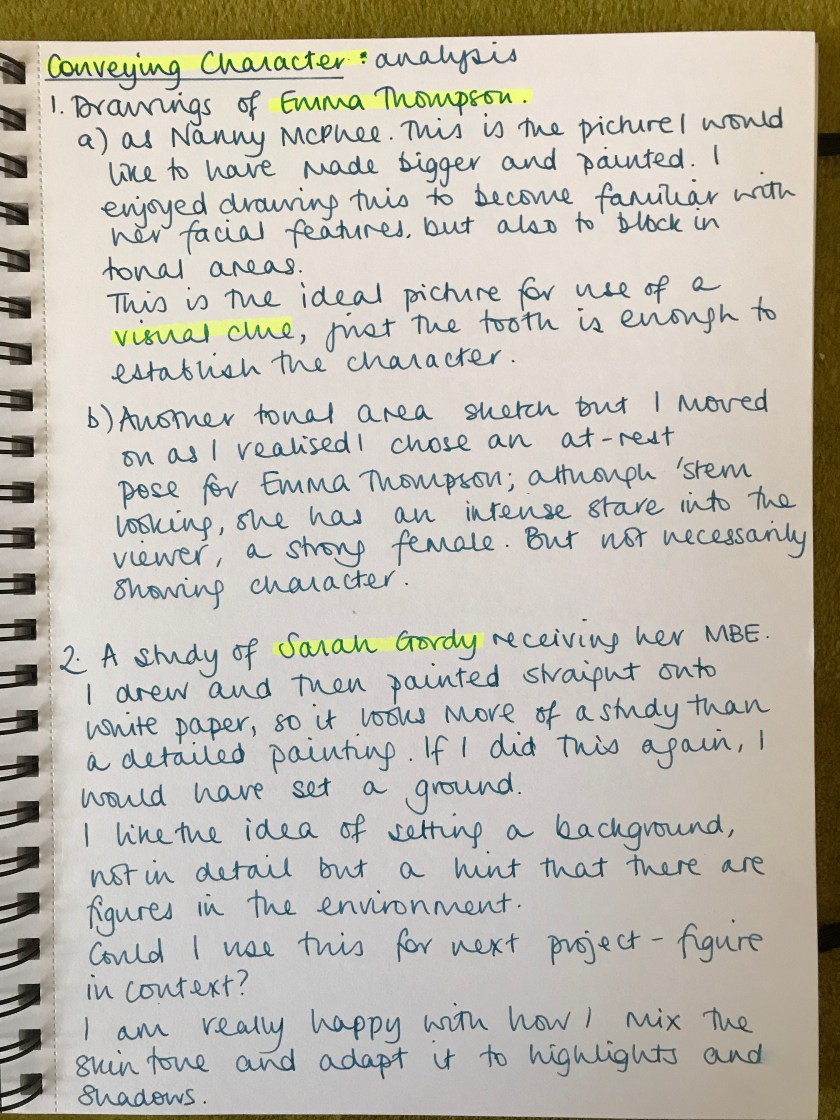 Conveying Character: analysis
1. Drawings of Emma Thompson.
a) as Nanny McPhee. This is the picture I would
like to have made bigger and painted. I
enjoyed drawing this to become familiar with
her facial features, but also to block in
tonal areas.
This is the ideal picture for use of a
visual clue, just the tooth is enough to
establish the character.
b) Another tonal area sketch but I moved
on as I realised I chose an at-rest
pose for Emma Thompson; although 'stern
looking, she has an intense stare into the
viewer, a strong female. But not necessarily
showing character.
2. A study of Sarah Gordy receiving her MBE.
I drew and then painted straight onto
white paper, so it looks more of a study than
a detailed painting. If I did this again, I
would have set a ground.
I like the idea of setting a background,
not in detail but a hint that there are
figures in the environment.
Could I use this for next project - figure
in context?
I am really happy with how I mix the
skin tone and adapt it to highlights and
shadows.